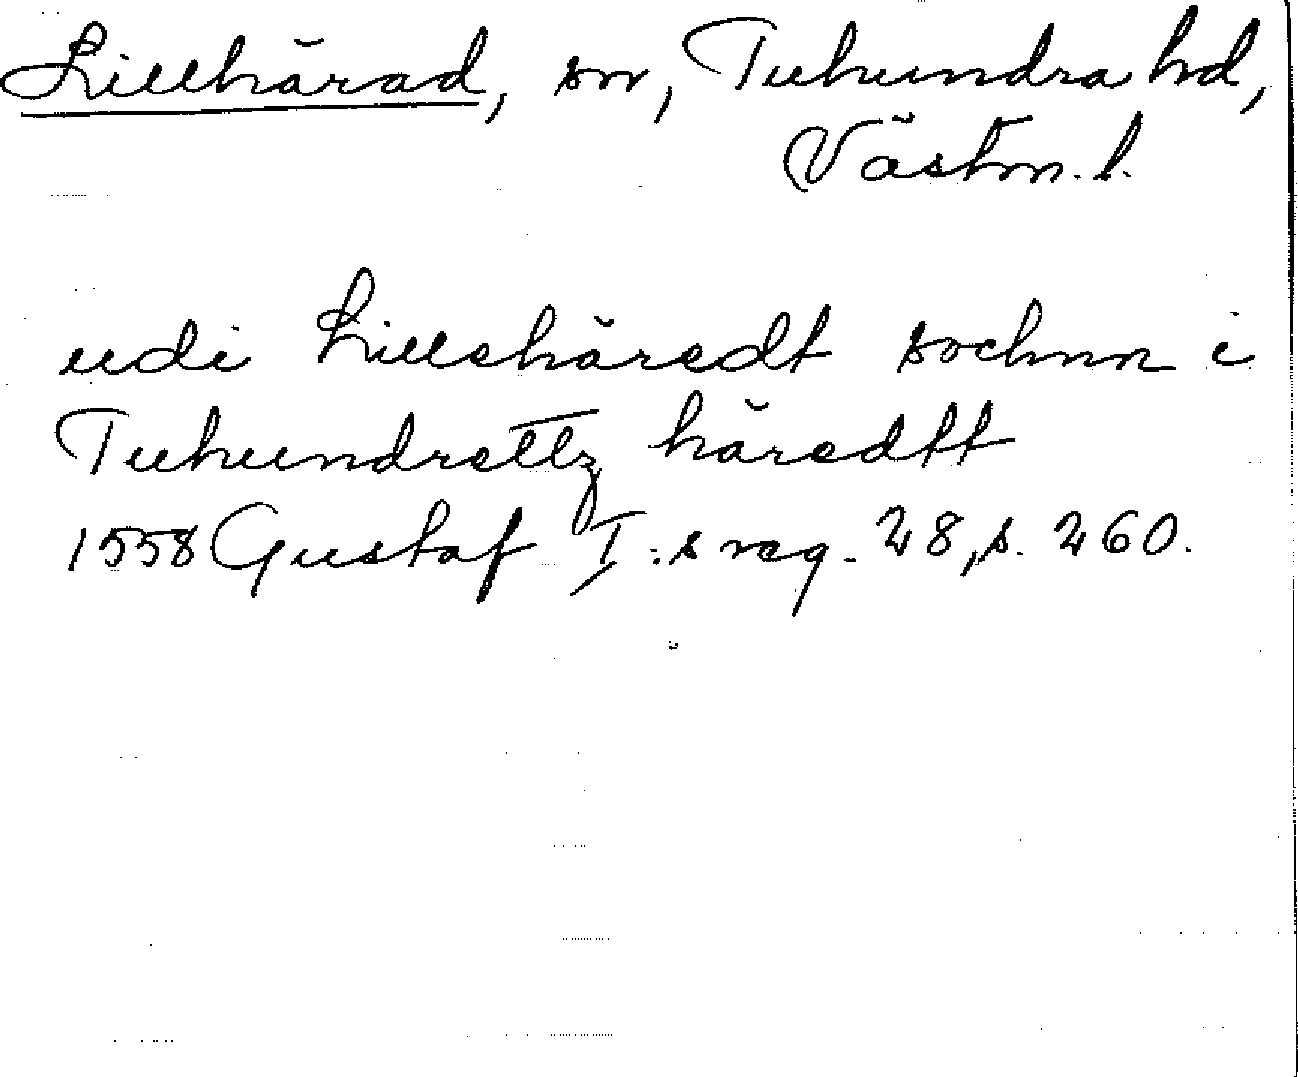 Lillhärad, sn, Tuhundra hd,
Västm. l.
udi Lilleháredt sochnn i
Tuhundrettz häredtt
1558 Gustaf I:s reg. 28, s. 260.